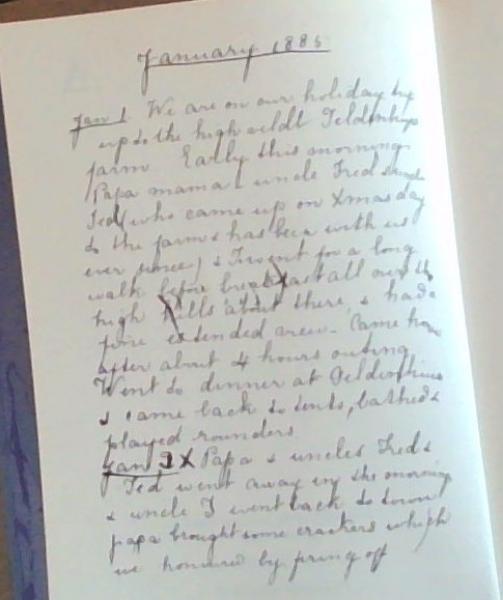 January 1885
Jan 1 We are on our holiday trip
up to the high veldt
farm Early this morning
Papa mama uncle Fred
Ted (who came up on Xmas day
to the farm & has been with us
ever since) & I went for a long
walk before breakfast all over the
high hills about there, & had a
fine extended view. Came home
after about 4 hours outing
Went to dinner at
& came back to tents, bathed &
played rounders
Jan 2 X Papa & uncles Fred &
Ted went away in the morning
& uncle I went back to town
papa brought some crackers which
we honoured by firing off